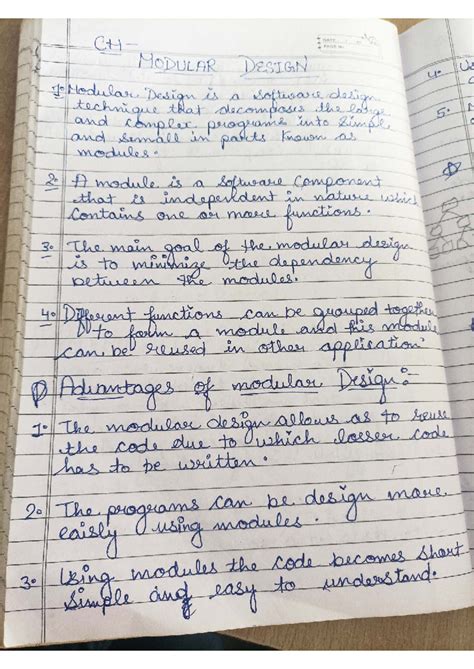 C++-
MODULAR DESIGN
1. Modular Design is a software design
technique that decomposes the large
and complex programs into simple
and small in parts known as
modules.
2. A module is a software component
that is independent in nature which
contains one or more functions.
3. The main goal of the modular design
is to minimize the dependency
between the modules.
4. Different functions can be grouped together
to form a module and this module
can be reused in other application.
Advantages of modular Design:-
1. The modular design allows as to reuse
the code due to which lesser code
has to be written.
2. The programs can be design more
eaisly using modules.
3. Using modules the code becomes short
simple and easy to understand.
4. Us
5.